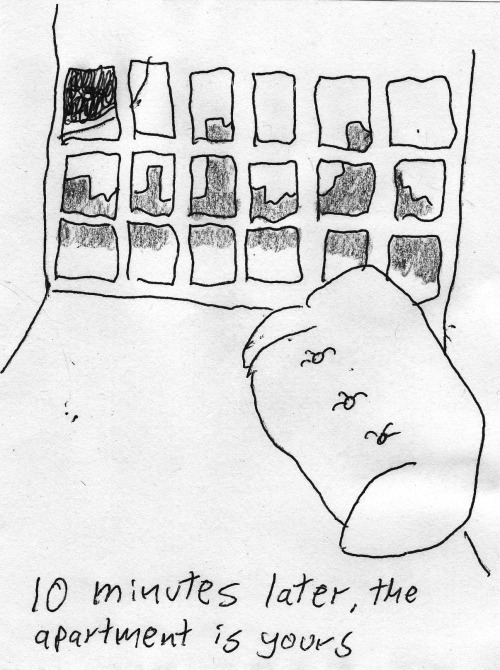 10 minutes later, the
apartment is yours